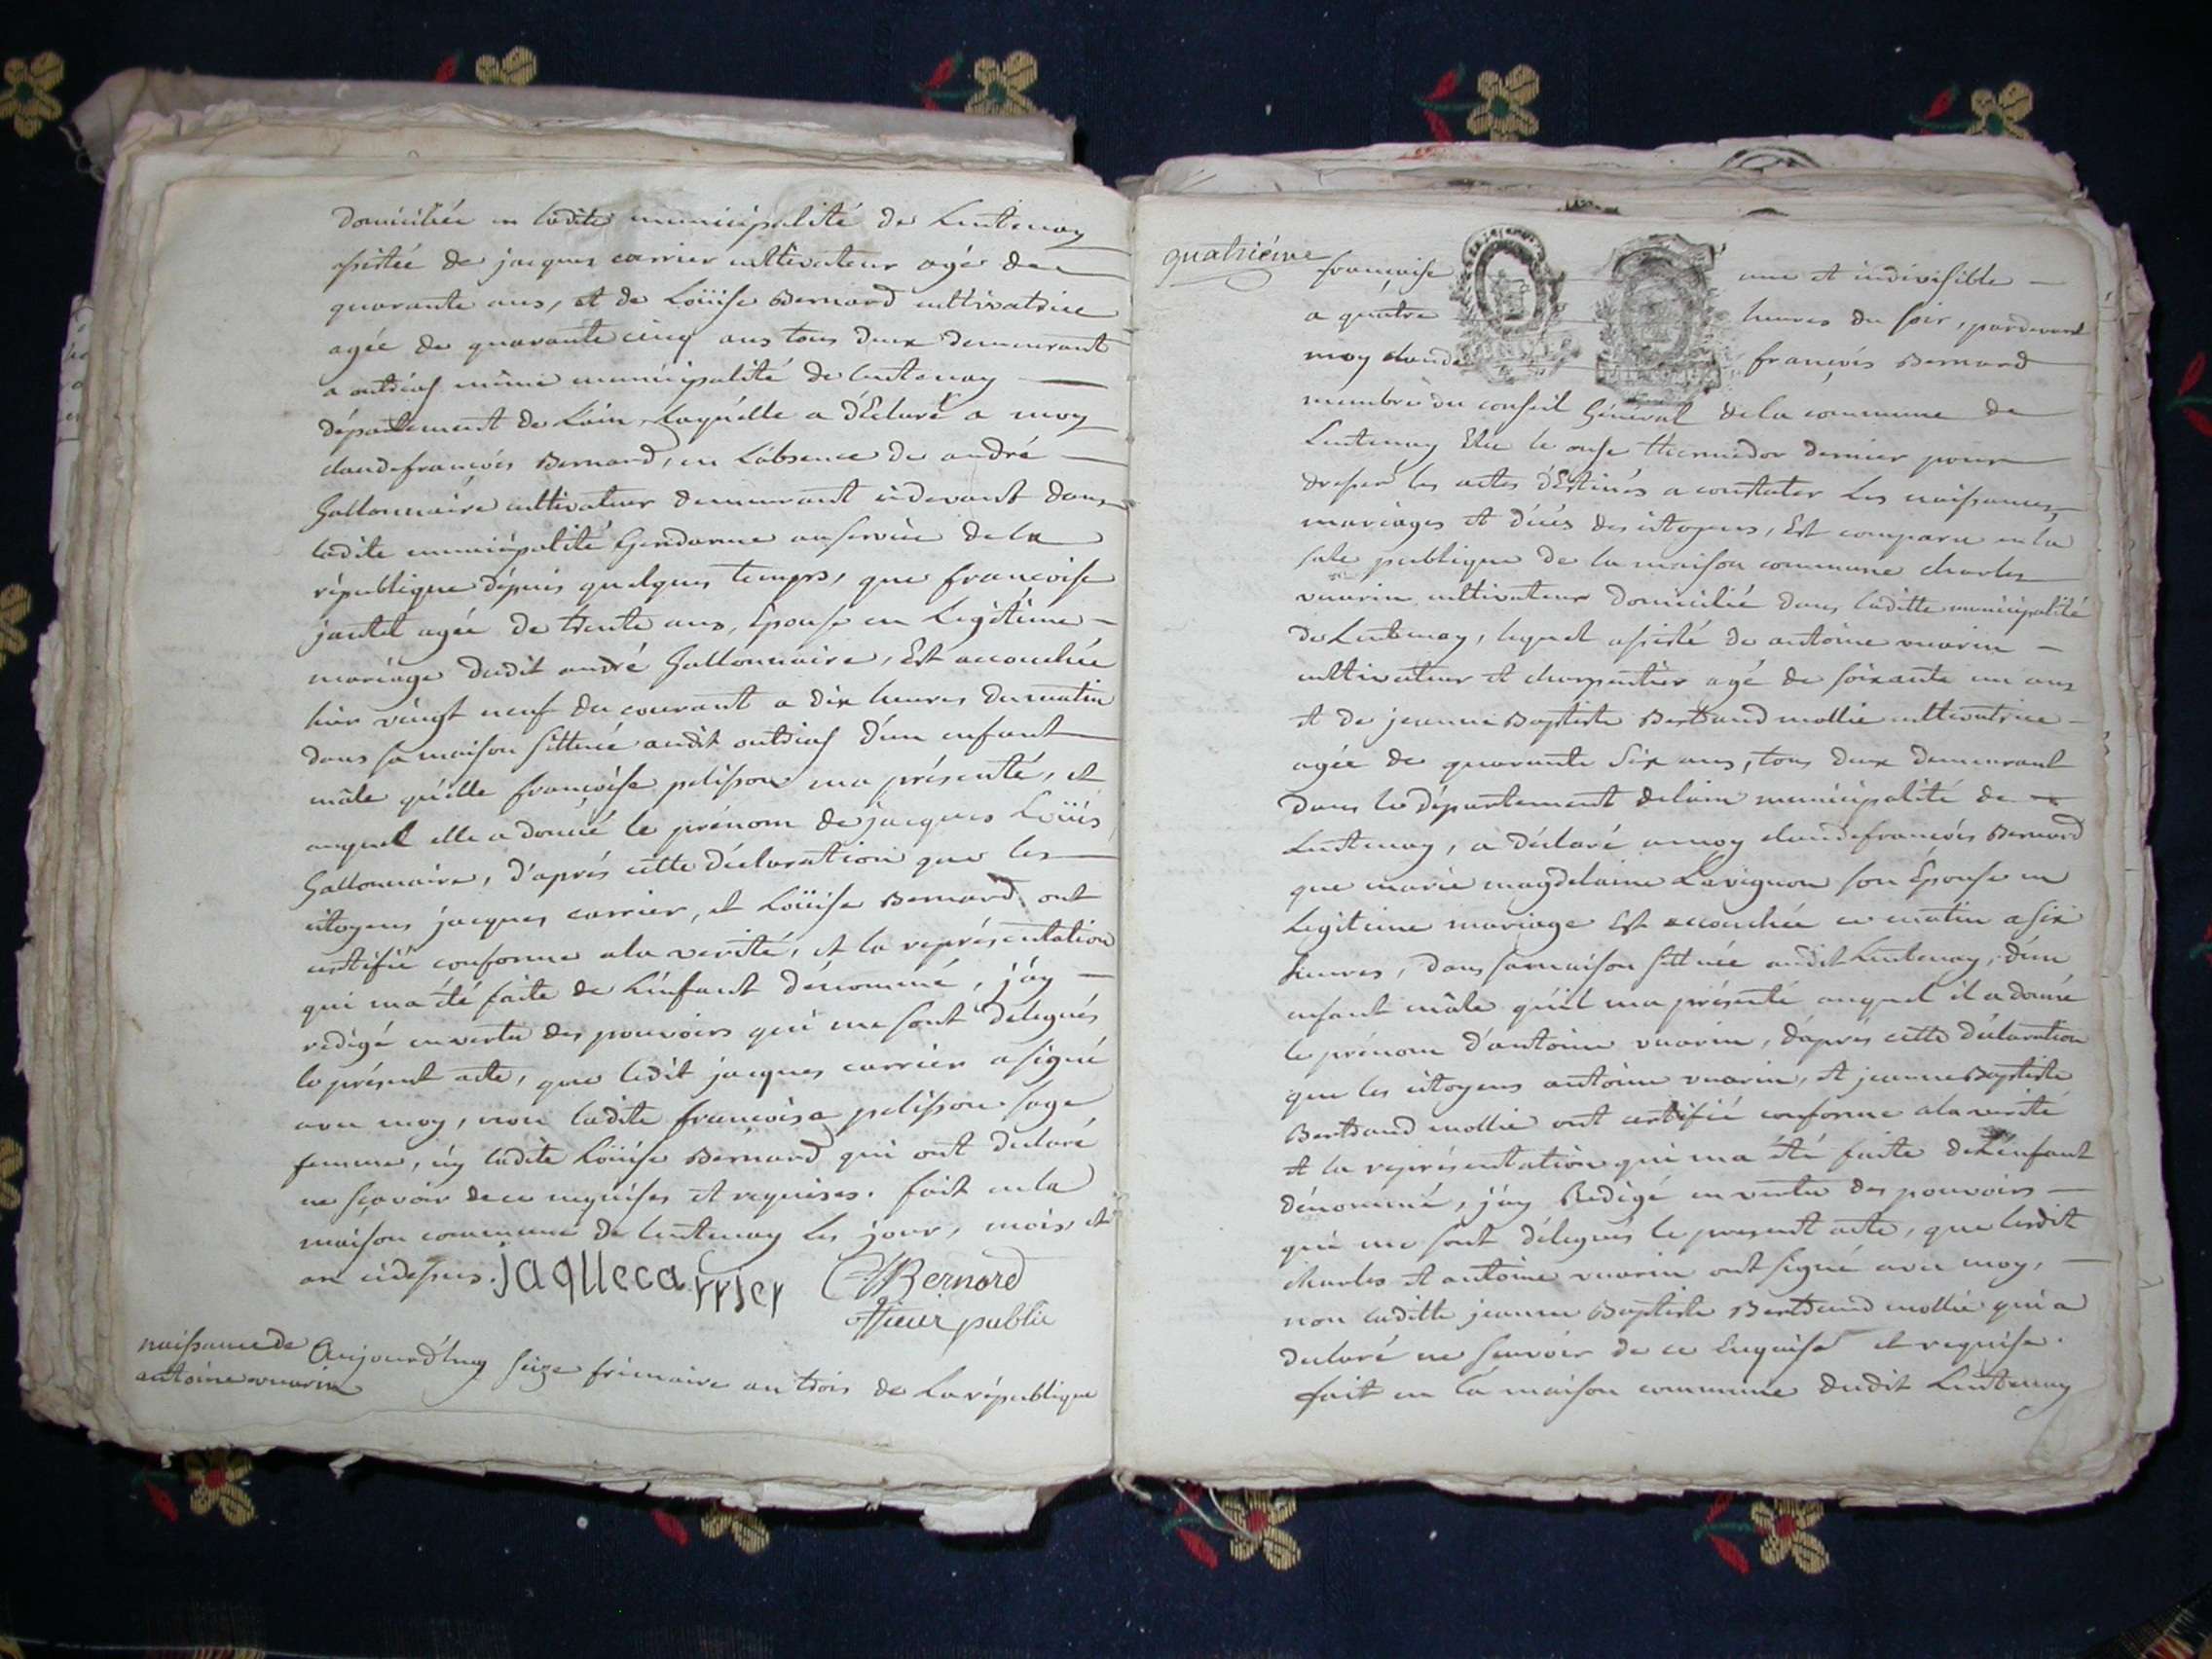 domiciliée en ladite municipalité de Lentenay
assistée de jacques carrier cultivateur agé de
quarante ans, et de Loüise Bernard cultivatrice
agée de quarante cinq ans tous deux demeurant
a outriaf même municipalité de lentenay
département de Lain, laquelle a déclaré a moy
claudefrançois Bernard, en Labsence de andré
Gallonnaire cultivateur demeurant cidevant dans
ladite municipalité Gendarme auservice dela
république dépuis quelques temps, que françoise
jantet agée de trente ans, Epouse en Legitime
mariage dudit andré Gallonnaire, Est accouchée
hier vingt neuf du courant a dix heures dumatin
dans sa maison sittuée audit outriaf d'un enfant
mâle qu'elle françoise pelisson ma présenté, et
auquel elle a donné le prénom de jacques Loüis
Gallonnaire, d'aprés cette déclaration que les
citoyens jacques carrier, et Loüise Bernard ont
certifié conforme ala verité, et la représentation
qui ma été faite de Lenfant dénommé, j'ay
redigé envertu des pouvoirs qui me sont delegués
le présent acte, que ledit jacques carrier a signé
avec moy, non ladite françoise pelisson sage
femme, ny ladite Loüise Bernard qui ont declaré
ne sçavoir dece enquises et requises. fait enla
maison commune de lentenay Les jour, mois, et
an cidessus. jaqllecarrier Bernard
officier public
naissance de
antoine vuarin
Aujourd'huy seize frimaire an trois de La république
quatriéme
française une et indivisible
a quatre heures du soir, pardevant
moy claude françois Bernard
membre du conseil Général dela commune de
Lentenay Elu le onse thermidor dernier pour
dresser les actes déstinés a constater Les naissances,
mariages et décés des citoyens, Est comparu enla
sale publique de la maison commune charles
vuarin cultivateur domicilié dans laditte municipalité
de Lentenay, lequel assisté de antoine vuarin
cultivateur et charpentier agé de soixante un ans
et de jeanne Baptiste Bertrand mollie cultivatrice
agée de quarante six ans, tous deux demeurant
dans le département delain municipalité de
Lentenay, a déclaré amoy claudefrançois Bernard
que marie magdelaine Lavignon son Epouse en
Legitime mariage Est accouchée ce matin a six
heures, dans samaison sittuée audit Lentenay, d'un
enfant mâle qu'il ma présenté auquel il a donné
le prénom d'antoine vuarin, d'aprés cette déclaration
que les citoyens antoine vuarin, et jeanne Baptiste
Bertrand mollie ont certifié conforme ala verité
et la représentation qui ma été faite de Lénfant
dénommé, j'ay Redigé en vertu des pouvoirs
qui me sont délegués le present acte, que lesdit
charles et antoine vuarin ont signé avec moy,
non laditte jeanne Baptiste Bertrand mollie qui a
declaré ne scavoir de ce Enquise et requise.
fait en la maison commune dudit Lentenay